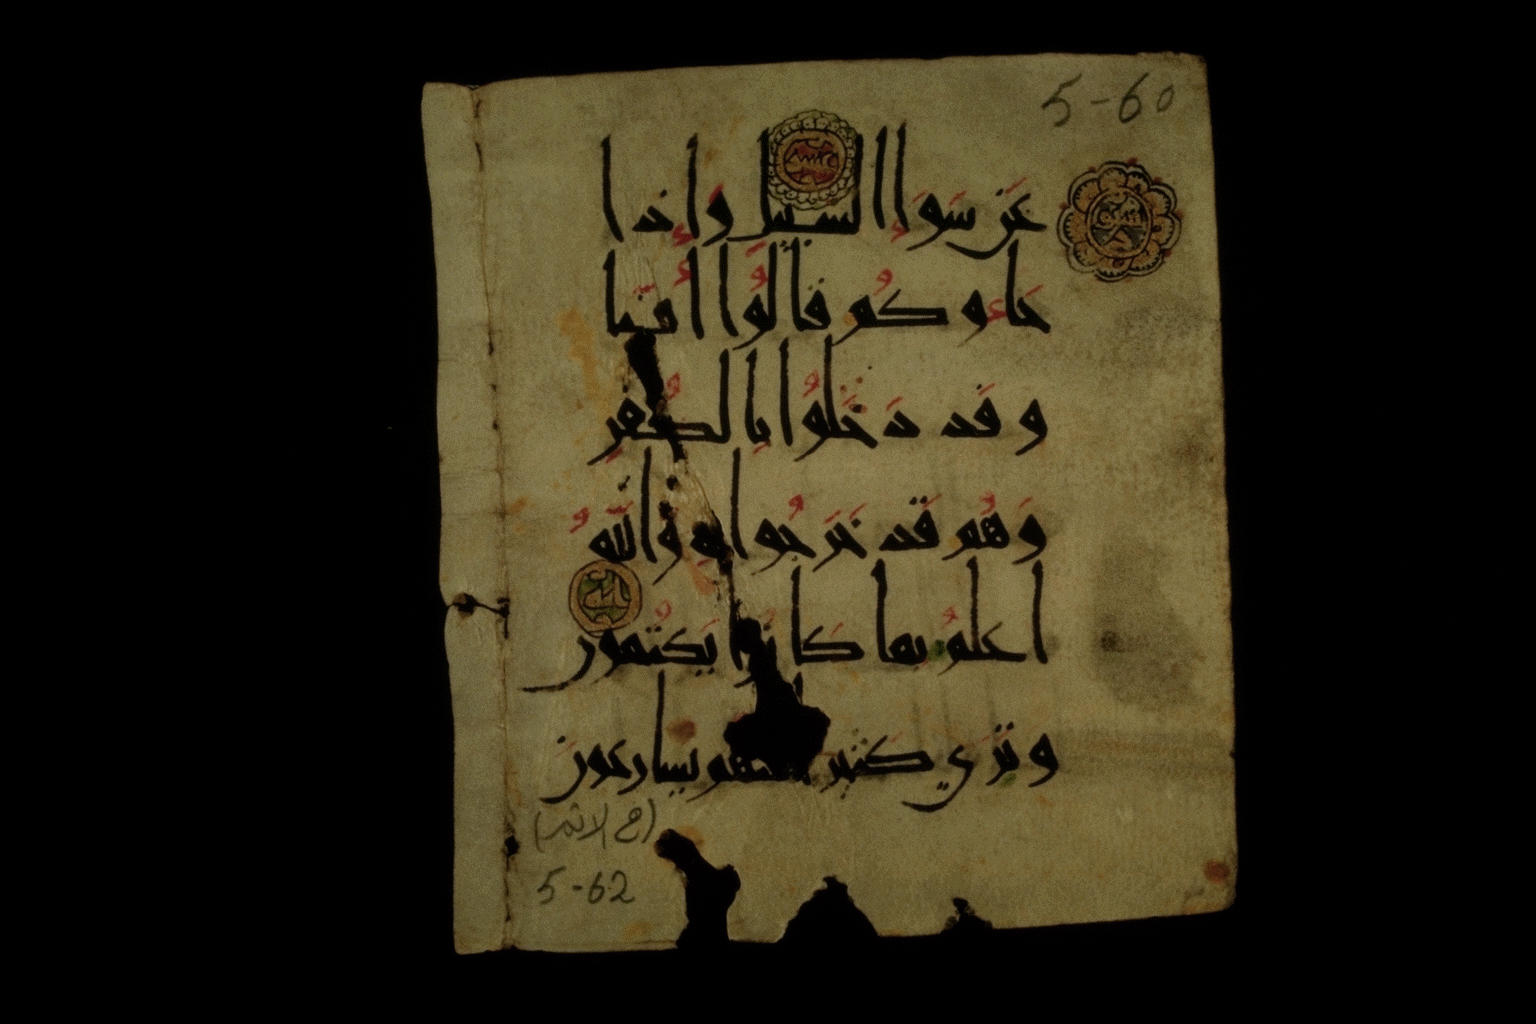 5-60
عَن سَوَاءِ السبيل وَإِذا
جَاءوكُم قَالُوا أٰمَنَّا
وقَد دَخَلُوا بِالكُفرِ
وَهُم قَد خَرَجُوا بِهِ وَاللّٰهُ
اعلَمُ بما كَانُوا يَكتُمُون
وتَرَي كَثيرا منهم يسارعونَ
(في الاثم)
5-62